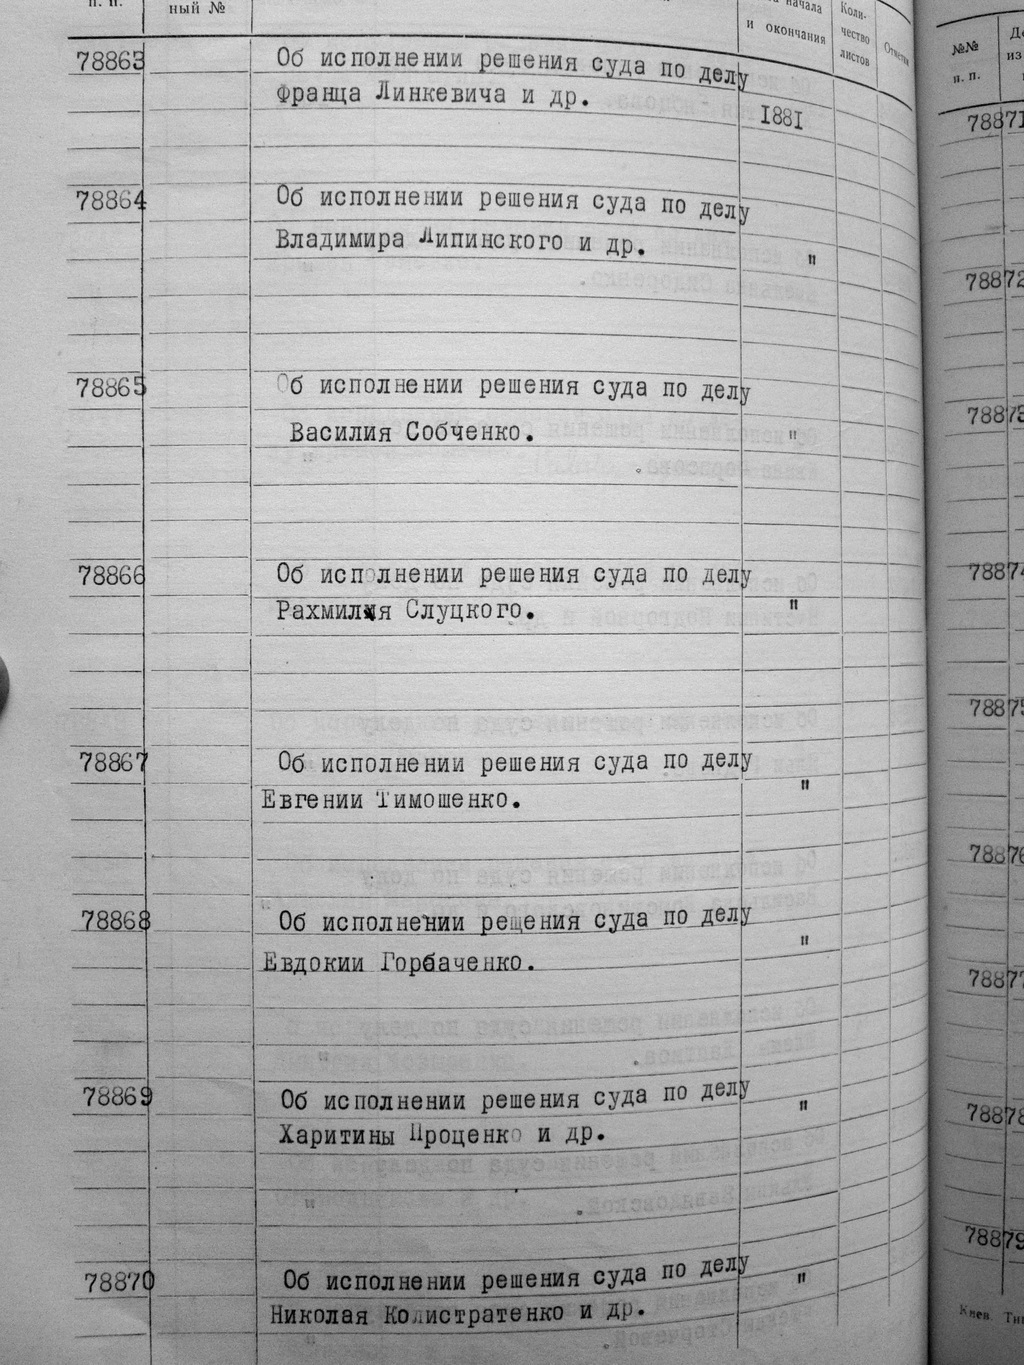 п. п.
ный №
начала
и окончания
Коли-
чество
листов
Отметки
78863 Об исполнении решения суда по делу
Франца Линкевича и др. 1881
78864 Об исполнении решения суда по делу
Владимира Липинского и др. "
78865 Об исполнении решения суда по делу
Василия Собченко. "
78866 Об исполнении решения суда по делу
Рахмиля Слуцкого. "
78867 Об исполнении решения суда по делу
Евгении Тимошенко. "
78868 Об исполнении решения суда по делу
Евдокии Горбаченко. "
78869 Об исполнении решения суда по делу
Харитины Проценко и др. "
78870 Об исполнении решения суда по делу
Николая Колистратенко и др. "
№№
п. п.
78871
78872
78873
78874
78875
78876
78877
78878
78879
Киев